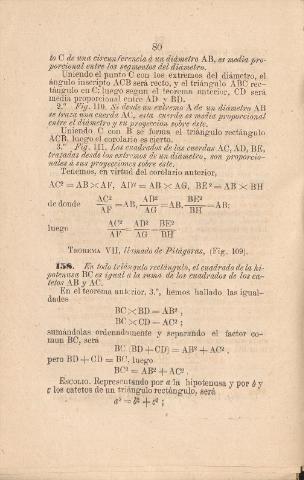 80
to C de una circunferencia á un diámetro AB, es media pro-
porcional entre los segmentos del diámetro.
Uniendo el punto C con los extremos del diámetro, el
ángulo inscripto ACB será recto, y el triángulo ABC rec-
tángulo en C; luego segun el teorema anterior, CD será
media proporcional entre AD y BD.
2.° Fig. 110. Si desde un extremo A de un diámetro AB
se traza una cuerda AC, esta cuerda es media proporcional
entre el diámetro y su proyeccion sobre éste.
Uniendo C con B se forma el triángulo rectángulo
ACB, luego el corolario es cierto.
3.° Fig. 111. Los cuadrados de las cuerdas AC, AD, BE,
trazadas desde los extremos de un diámetro, son proporcio-
nales á sus proyecciones sobre éste.
Tenemos, en virtud del corolario anterior,
AC² = AB × AF, AD² = AB × AG, BE² = AB × BH
de donde AC²/AF = AB, AD²/AG = AB, BE²/BH = AB;
luego AC²/AF = AD²/AG = BE²/BH
TEOREMA VII, llamado de Pitágoras, (Fig. 109).
158. En todo triángulo rectángulo, el cuadrado de la hi-
potenusa BC es igual á la suma de los cuadrados de los ca-
tetos AB y AC.
En el teorema anterior, 3.°, hemos hallado las igual-
dades
BC × BD = AB²,
BC × CD = AC²;
sumándolas ordenadamente y separando el factor co-
mun BC, será
BC (BD + CD) = AB² + AC²,
pero BD + CD = BC, luego
BC² = AB² + AC².
ESCOLIO. Representando por a la hipotenusa y por b y
c los catetos de un triángulo rectángulo, será
a² = b² + c²;